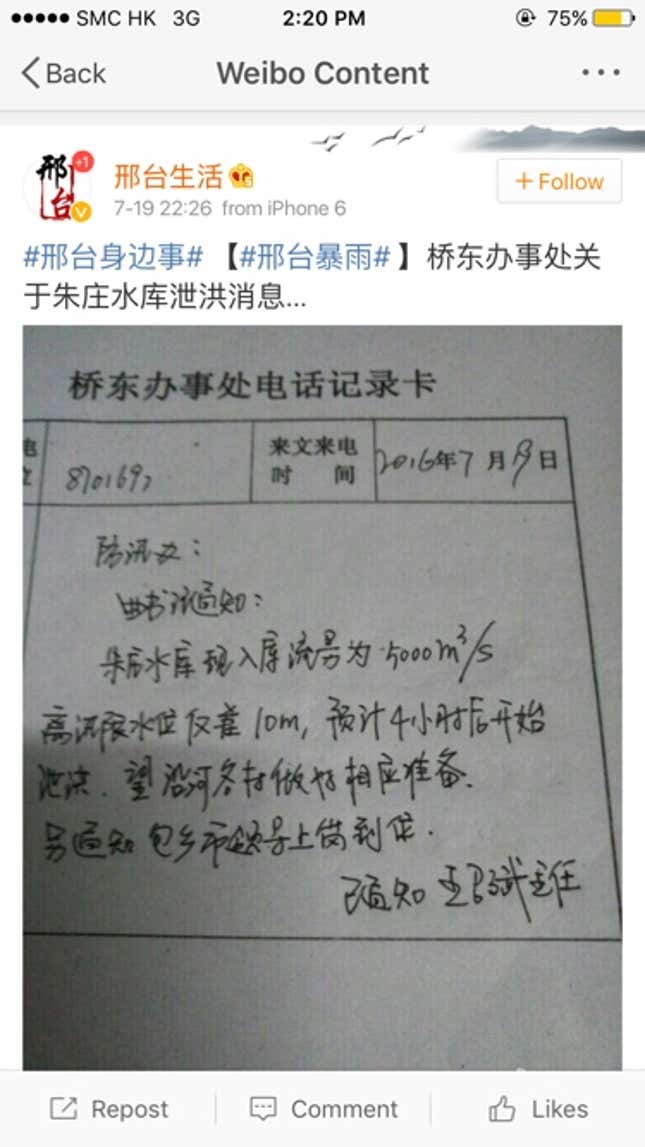 SMC HK 3G 2:20 PM 75%
Back Weibo Content
邢台 +1
邢台生活
7-19 22:26 from iPhone 6
+ Follow
#邢台身边事# 【#邢台暴雨#】桥东办事处关
于朱庄水库泄洪消息...
桥东办事处电话记录卡
电
8701697
来文来电
时 间
2016年7月19日
防汛办:
朱庄水库现入库流量为5000m³/s
离汛限水位仅差10m,预计4小时后开始
泄洪.望沿河各村做好相应准备.
另通知包乡市领导上岗到位.
已通知 主任
Repost Comment Likes